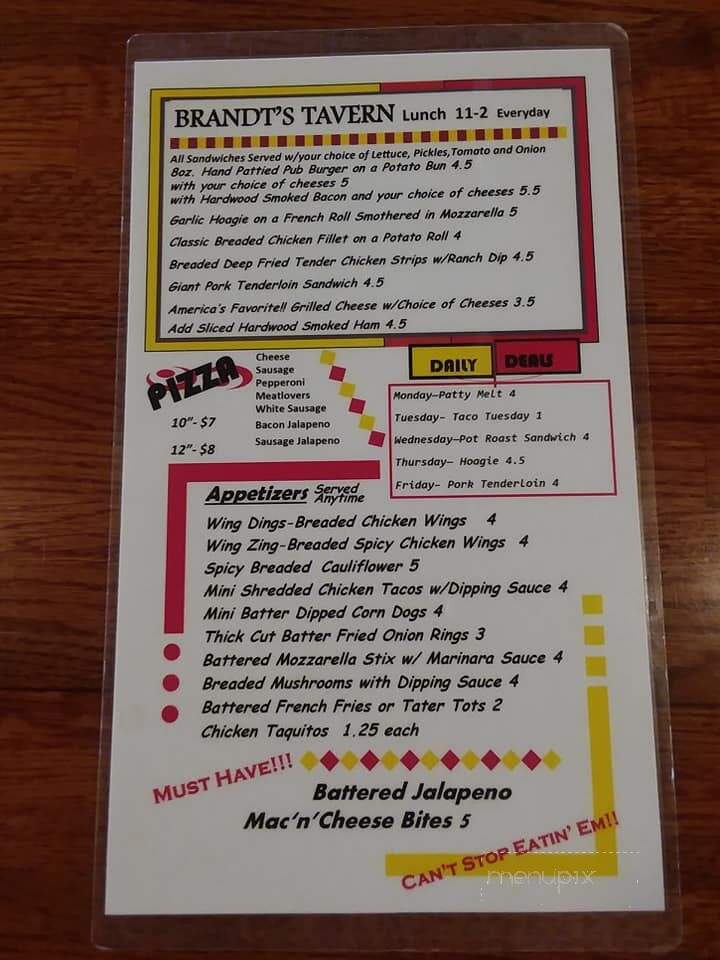 BRANDT'S TAVERN Lunch 11-2 Everyday
All Sandwiches Served w/your choice of Lettuce, Pickles,Tomato and Onion
8oz. Hand Pattied Pub Burger on a Potato Bun 4.5
with your choice of cheeses 5
with Hardwood Smoked Bacon and your choice of cheeses 5.5
Garlic Hoagie on a French Roll Smothered in Mozzarella 5
Classic Breaded Chicken Fillet on a Potato Roll 4
Breaded Deep Fried Tender Chicken Strips w/Ranch Dip 4.5
Giant Pork Tenderloin Sandwich 4.5
America's Favorite!! Grilled Cheese w/Choice of Cheeses 3.5
Add Sliced Hardwood Smoked Ham 4.5
PIZZA
10"- $7
12"- $8
Cheese
Sausage
Pepperoni
Meatlovers
White Sausage
Bacon Jalapeno
Sausage Jalapeno
DAILY DEALS
Monday—Patty Melt 4
Tuesday- Taco Tuesday 1
Wednesday—Pot Roast Sandwich 4
Thursday— Hoagie 4.5
Friday- Pork Tenderloin 4
Appetizers Served Anytime
Wing Dings-Breaded Chicken Wings 4
Wing Zing-Breaded Spicy Chicken Wings 4
Spicy Breaded Cauliflower 5
Mini Shredded Chicken Tacos w/Dipping Sauce 4
Mini Batter Dipped Corn Dogs 4
Thick Cut Batter Fried Onion Rings 3
Battered Mozzarella Stix w/ Marinara Sauce 4
Breaded Mushrooms with Dipping Sauce 4
Battered French Fries or Tater Tots 2
Chicken Taquitos 1.25 each
MUST HAVE!!!
Battered Jalapeno
Mac'n'Cheese Bites 5
CAN'T STOP EATIN' EM!!
menupix